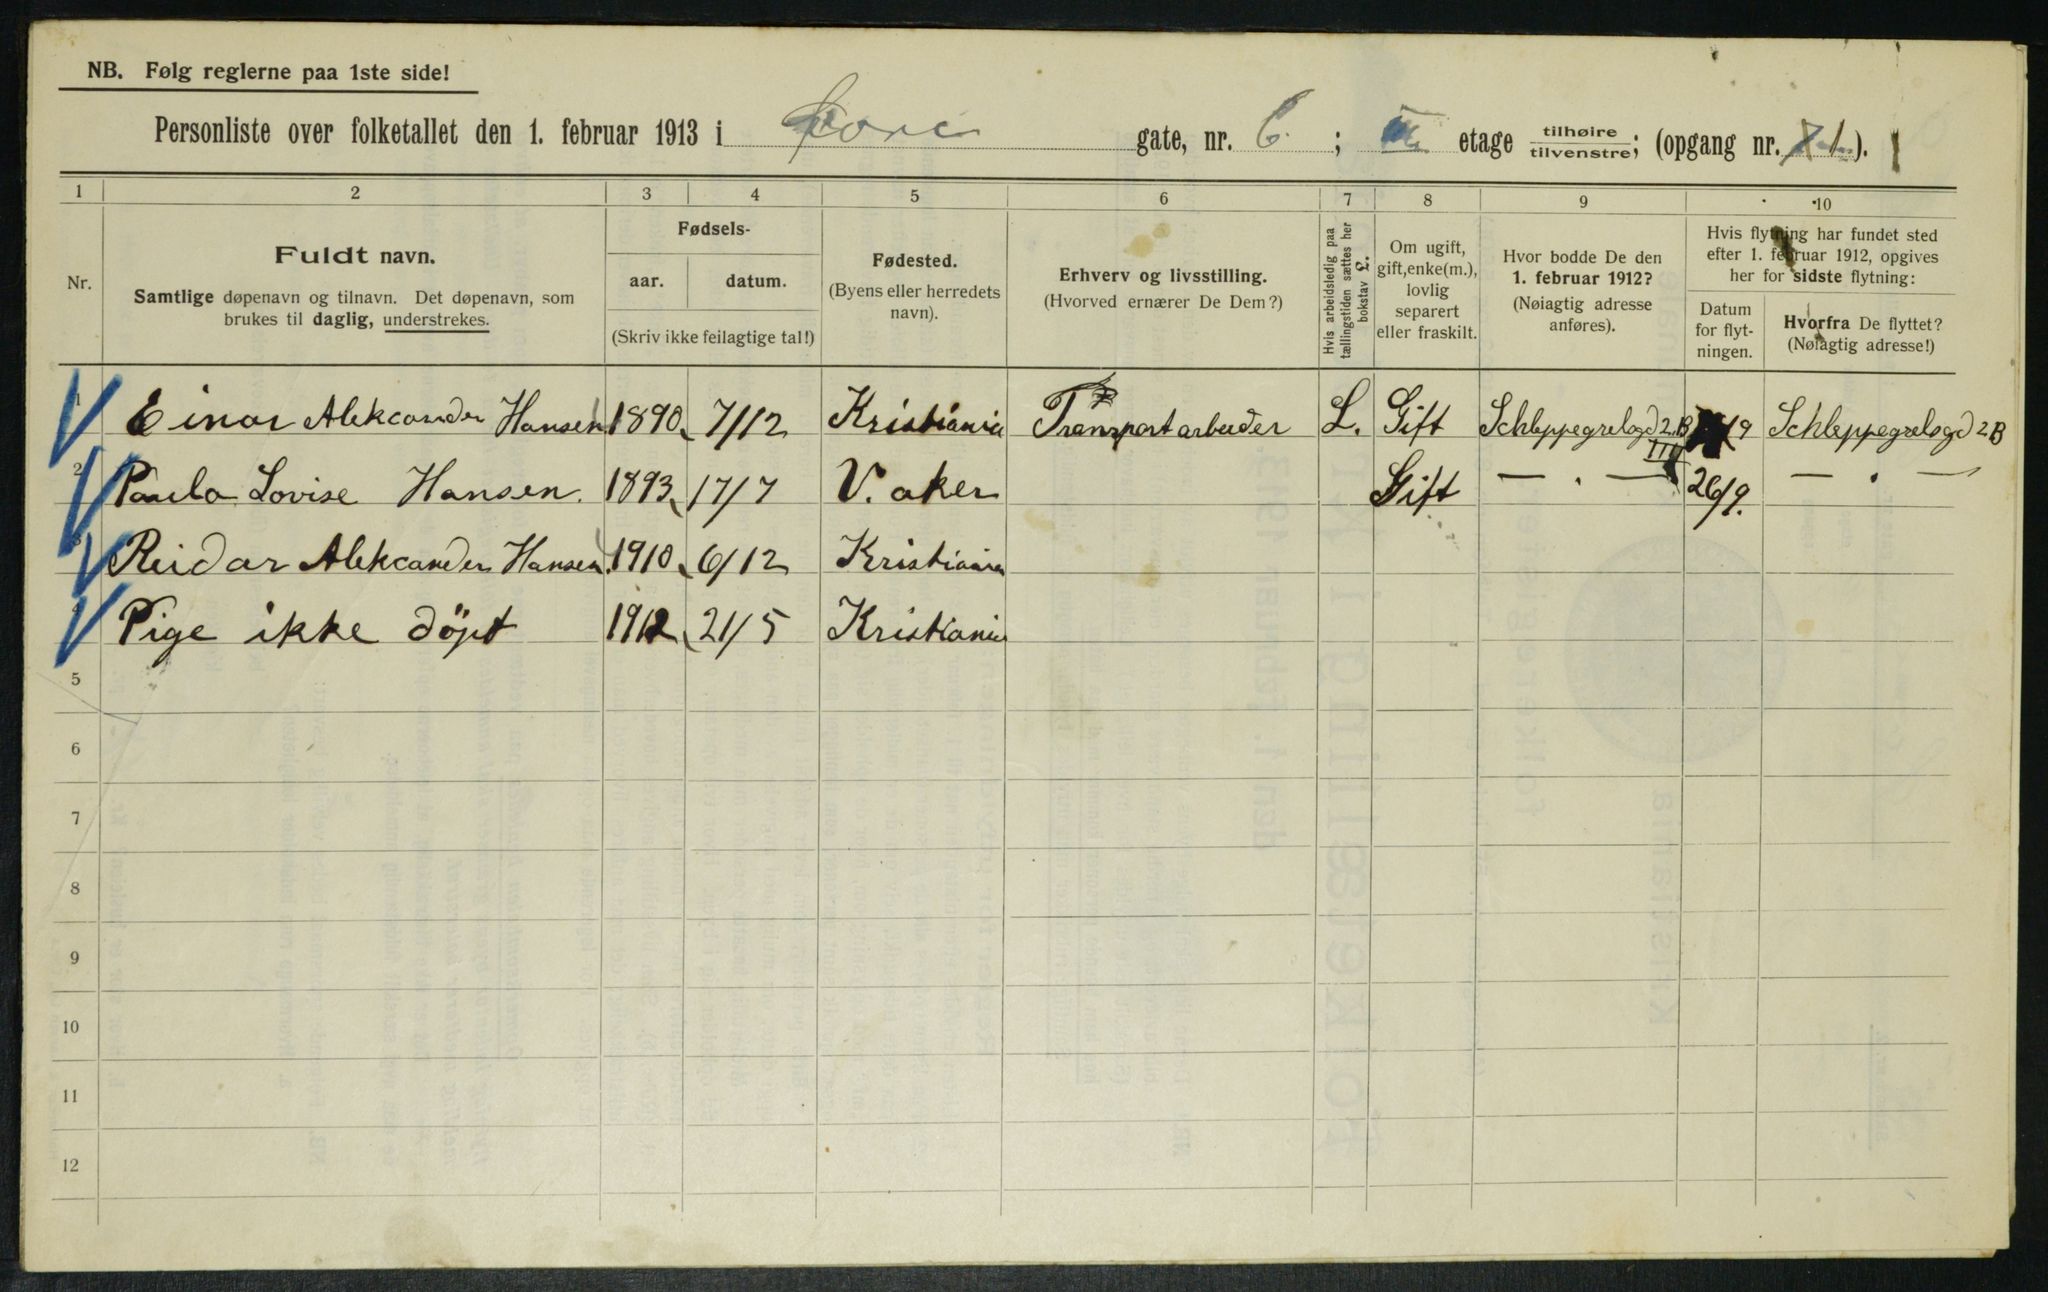 NB. Følg reglerne paa 1ste side!
Personliste over folketallet den 1. februar 1913 i gate, nr. 6. ; etage tilhøire tilvenstre; (opgang nr. 1).
1 2 3 4 5 6 7 8 9 10
Nr.
Fuldt navn.
Samtlige døpenavn og tilnavn. Det døpenavn, som
brukes til daglig, understrekes.
Fødsels-
aar. datum.
(Skriv ikke feilagtige tal!)
Fødested.
(Byens eller herredets
navn).
Erhverv og livsstilling.
(Hvorved ernærer De Dem?)
Hvis arbeidsledig paa
tællingstiden sættes her
bokstav L.
Om ugift,
gift, enke(m.),
lovlig
separert
eller fraskilt.
Hvor bodde De den
1. februar 1912?
(Nøiagtig adresse
anføres).
Hvis flytning har fundet sted
efter 1. februar 1912, opgives
her for sidste flytning:
Datum
for flyt-
ningen.
Hvorfra De flyttet?
(Nøiagtig adresse!)
1 Einar Alekcander Hansen 1890 7/12 Kristiania Transportarbeider L. Gift Schleppegrelsgd 2.B III 9 Schleppegrelsgd 2B
2 Paula Lovise Hansen. 1893 17/7 V. aker Gift — . — 26/9. — . —
3 Reidar Alekcander Hansen. 1910 6/12 Kristiania
4 Pige ikke döpt 1912 21/5 Kristiania
5
6
7
8
9
10
11
12